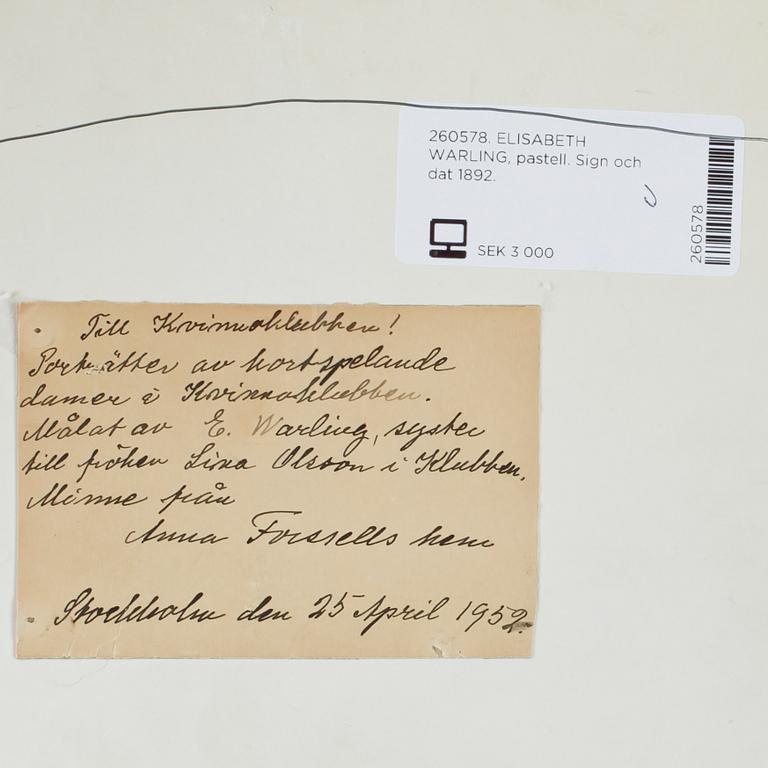 260578. ELISABETH
WARLING, pastell. Sign och
dat 1892.
SEK 3 000
260578
Till Kvinnoklubben!
Porträtter av kortspelande
damer i Kvinnoklubben.
Målat av E. Warling, syster
till fröken Lina Olsson i Klubben.
Minne från
Anna Forssells hem
Stockholm den 25 April 1952.